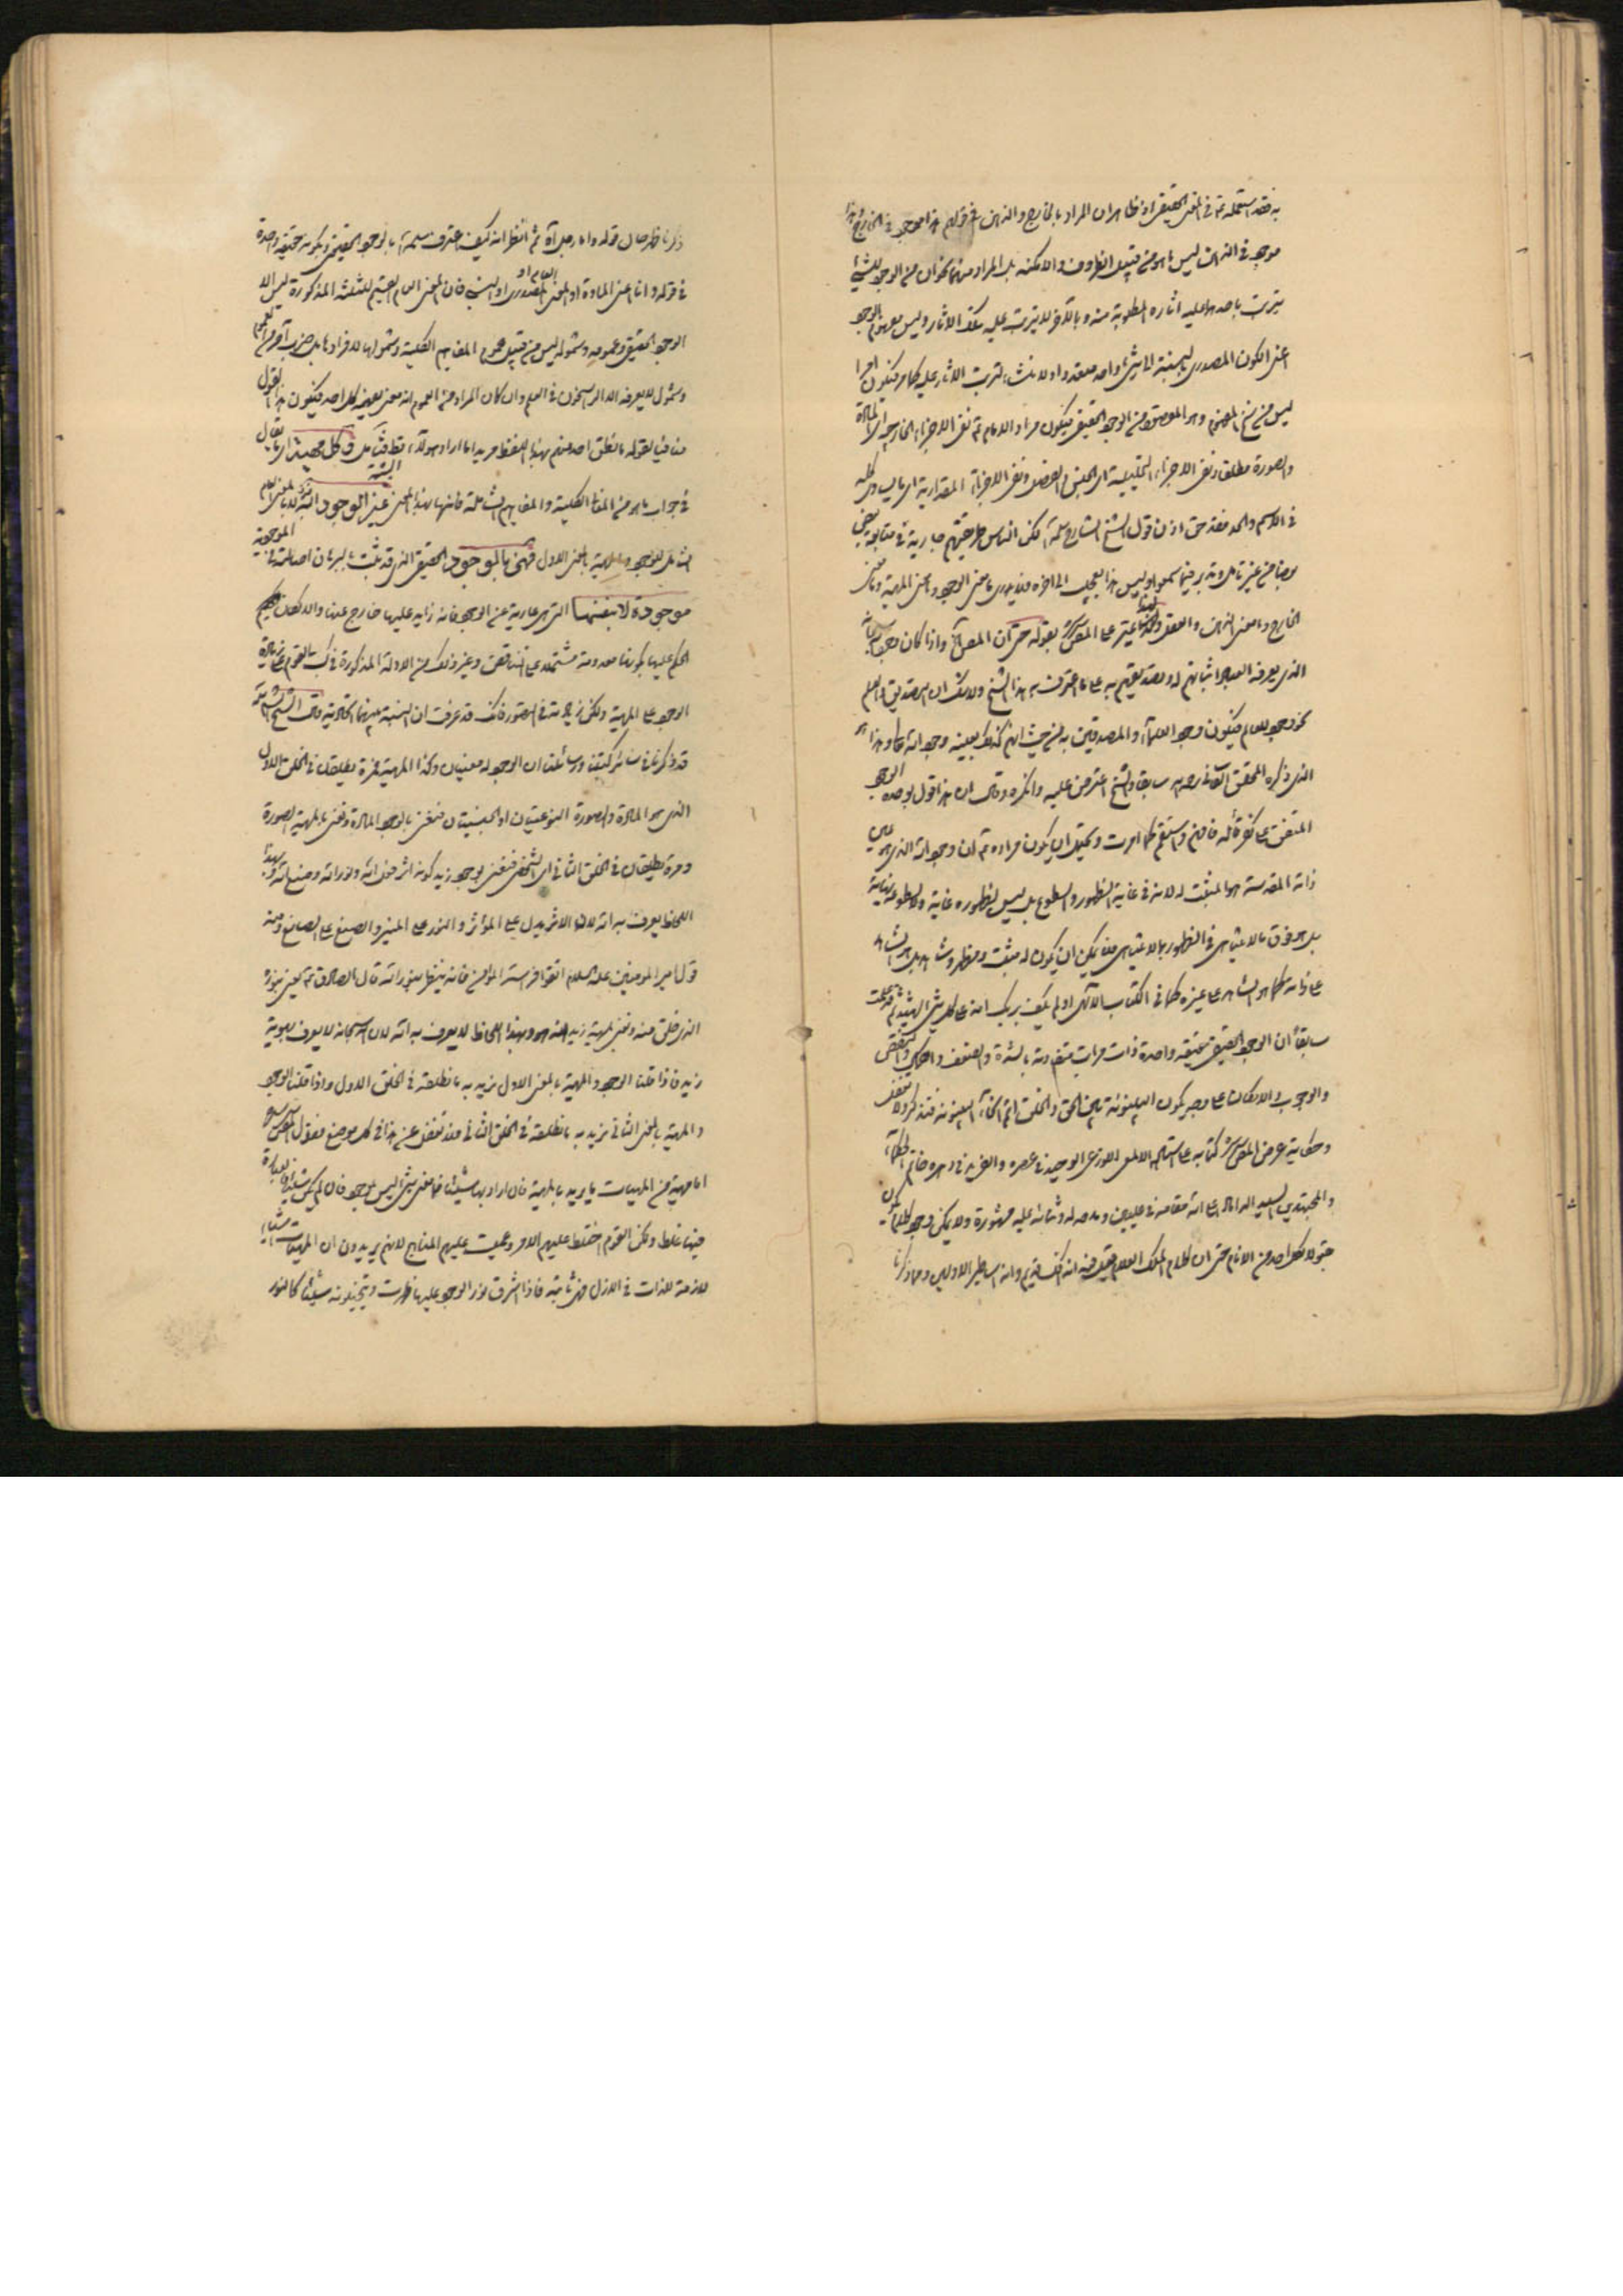 به فقد استعمله ثمة في المعنى الحقيقي اذ ظاهر ان المراد بالخارج والذهن في قولهم هذا موجود في الخارج وهذا
موجود في الذهن ليس ما هو من قبيل الظروف والامكنة بل المراد منهما نحوان من الوجود للشيء
يترتب باحدهما عليه اثاره المطلوبة منه وبالاخر لا يترتب عليه تلك الاثار وليس مفهوم الوجود
اعنى الكون المصدري بالنسبة الى شيء واحد متعددا ولا منشأ لترتب الاثار عليه كما مر فيكون امرا
ليس من سنخ المفهوم وهو المقصود من الوجود الحقيقي فيكون مراد الامام ثمة نفى الاجزاء الخارجية اى المادة
والصورة مطلقا ونفى الاجزاء التحليلية اى الجنس والفصل ونفى الاجزاء المقدارية اى ما يساوى كله
في الاسم والحد فقد حق اذن قول الشيخ الشارح سلمه لكن الناس طريقتهم جارية في متابعة بعض
بعضا من غير تأمل وتدبر فيما سمعوا وليس هذا بعجيب الى اخره فلا يدرى ما معنى الوجود وما معنى المهية وما معنى
الخارج وما معنى الذهن والعقل واعترض على المصنف بقوله حتى ان المصنف واذا كان وجود
الذى يعرفه العباد اثباتهم له وتصديقهم به على ما اعترف به هذا الشيخ ولا شك ان التصديق والعلم
نحو وجود للعالم فيكون وجود العلماء والمصدقين به من حيث انهم كذلك بعينه وجود اته تعالى وهذا هو
الذى ذكره المحقق الدوانى سابقا والشيخ اعترض عليه وانكره وقال ان هذا قول بوحدة الوجود
المتفق على كفر قائله فافهم واستقم كما امرت ويحتمل ان يكون مراده ثمة ان وجود اته الذى هو عين
ذاته المقدسة هو المثبت له لانه في غاية الظهور والسطوع بل ليس لظهوره غاية ولسطوعه نهاية
بل هو فوق ما لا يتناهى في الظهور بما لا يتناهى فلا يمكن ان يكون له مثبت ومظهر وشاهد بل هو الشاهد
على ذاته كما هو الشاهد على غيره كما في الكتاب الالهى اولم يكف بربك انه على كل شئ شهيد ثم قد علمت
سابقا ان الوجود الحقيقى حقيقة واحدة ذات مراتب متفاوتة بالشدة والضعف والكمال والنقص
والوجوب والامكان على وجه يكون البينونة بين الحق والخلق اتم انحاء البينونة فتذكر ولا تغفل
وحكاية عرض المصنف كتابه على استاده الالمعى اللوذعى الوحيد في عصره والفريد في دهره خاتم الحكماء
والمجتهدين السيد الداماد اعلى الله مقامه في عليين ومدحه له وثنائه عليه مشهورة ولا يمكن وجود كلام يكون
مقبولا لكل احد من الانام حتى ان كلام الملك العلام قيل فيه انه افك قديم وانه اساطير الاولين ومما ذكرنا
ذكرنا ظهر حال قوله واما رجل آه ثم انظر انه كيف اعترف سلمه بالوجود الحقيقى وبكونه حقيقة واحدة
في قوله وانا اعنى المادة او المعنى العام او المصدرى او النسبى فان المعنى العام القسيم للثلثة المذكورة ليس الا
الوجود الحقيقى وعمومه وشموله ليس من قبيل عموم المفاهيم الكلية وشمولها للافراد بل ضرب آخر من العموم
وشمول لا يعرفه الا الراسخون في العلم وان كان المراد من العموم انه معنى يفهمه كل احد فيكون هذا القول
منافيا لقوله ما نطق احد منهم بهذا اللفظ مريدا ما اراد هؤلاء قط فتأمل قوله كل مهية اى ما يقال
في جواب ما هو من المفاهيم الكلية والمفاهيم الشاملة فانها بهذا المعنى غير الوجود البتة لا بالمعنى العام
الشامل للوجود والمهية بالمعنى الاول فهى بالوجود الحقيقى الذى قد ثبت بالبرهان اصالته في الموجودية
موجودة لا بنفسها التى هى عارية عن الوجود فانه زايد عليها خارج عنها والا لكان
الحكم عليها بكونها معدومة مشتملا على التناقض وغير ذلك من الادلة المذكورة في كتب القوم على زيادة
الوجود على المهية ولكن زيادته في التصور فانك قد عرفت ان النسبة بينهما اتحادية قال الشيخ سلمه
قد ذكرنا في سائر كتبنا ورسائلنا ان الوجود له معنيان وكذا المهية فمرة يطلقان في الخلق الاول
الذى هو المادة والصورة النوعيتان او الجنسيتان فنعنى بالوجود المادة ونعنى بالمهية الصورة
ومرة يطلقان في الخلق الثانى اى الشخص فنعنى بوجود زيد كونه اثر فعل الله ونور الله وصنع الله وبهذا
اللحاظ يعرف به الله لان الاثر يدل على المؤثر والنور على المنير والصنع على الصانع ومنه
قول امير المومنين عليه السلام اتقوا فراسة المؤمن فانه ينظر بنور الله قال الصادق ثمة يعنى بنوره
الذى خلق منه ونعنى بمهية زيد انه هو وبهذا اللحاظ لا يعرف به الله لان الله سبحانه لا يعرف بهوية
زيد فاذا قلنا الوجود والمهية بالمعنى الاول نريد به ما نطلقه في الخلق الاول واذا قلنا الوجود
والمهية بالمعنى الثانى نريد به ما نطلقه في الخلق الثانى فلا تغفل عن هذا في كل موضع فقول المصنف
اما مهية من المهيات ما يريد بالمهية فان اراد بها شيئا فما معنى شئ ليس بوجود فان لم يكن شيئا فالعبارة
فيها غلط ولكن القوم اختلط عليهم الامر وعميت عليهم المناهج لانهم يريدون ان المهيات اشياء
لازمة للذات في الازل فهى ثابتة فاذا اشرق نور الوجود عليها ظهرت ويتخيلونه شيئا كالنور